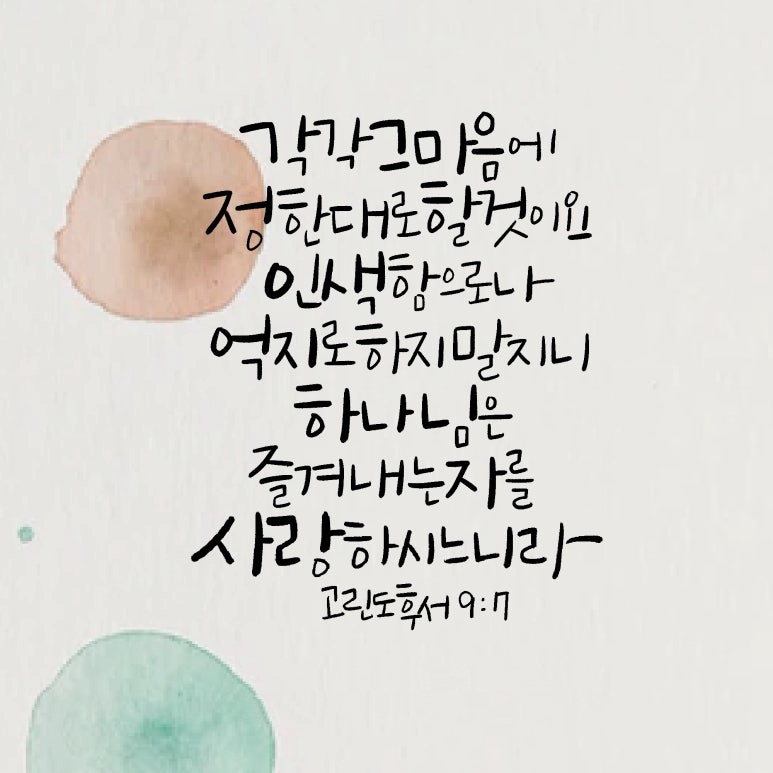 각각그마음에
정한대로할것이요
인색함으로나
억지로하지말지니
하나님은
즐겨내는자를
사랑하시느니라
고린도후서 9:7